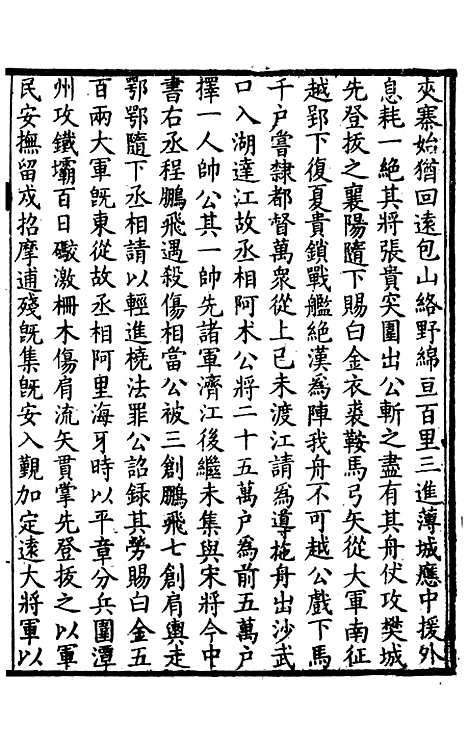 夾寨始猶回遠包山絡野綿亘百里三進薄城應中援外
息耗一絶其將張貴突圍出公斬之盡有其舟伏攻樊城
先登拔之襄陽隨下賜白金衣裘鞍馬弓矢從大軍南征
越郢下復夏貴鎖戰艦絶漢為陣我舟不可越公戲下馬
千户嘗隸都督萬衆從上已未渡江請為導拖舟出沙武
口入湖達江故丞相阿术公將二十五萬户為前五萬户
擇一人帥公其一帥先諸軍濟江後繼未集與宋將今中
書右丞程鵬飛遇殺傷相當公被三創鵬飛七創肩輿走
鄂鄂隨下丞相請以輕進橈法罪公詔録其勞賜白金五
百兩大軍旣東從故丞相阿里海牙時以平章分兵圍潭
州攻鐵壩百日礮激柵木傷肩流矢貫掌先登拔之以軍
民安撫留戍招摩逋殘旣集旣安入覲加定遠大將軍以